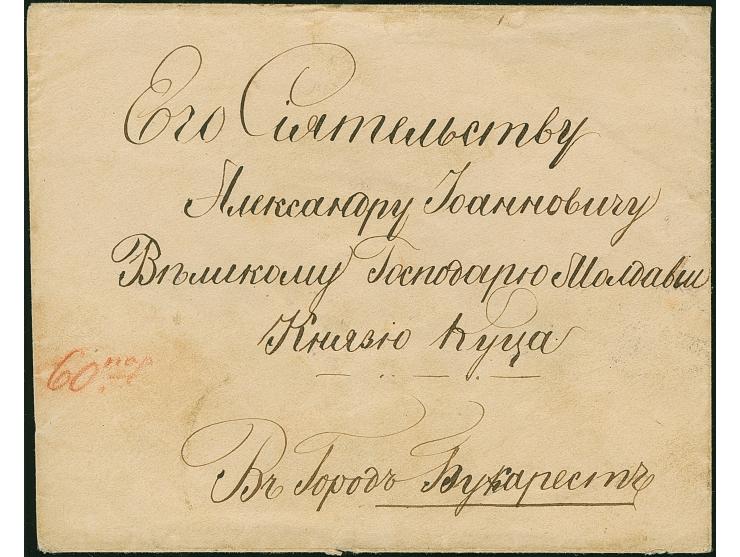 Его Сіятельству
Александру Іоанновичу
Вѣликому Господарю Молдавіи
Князю Куза
60 пар
Въ Городъ Букарестъ